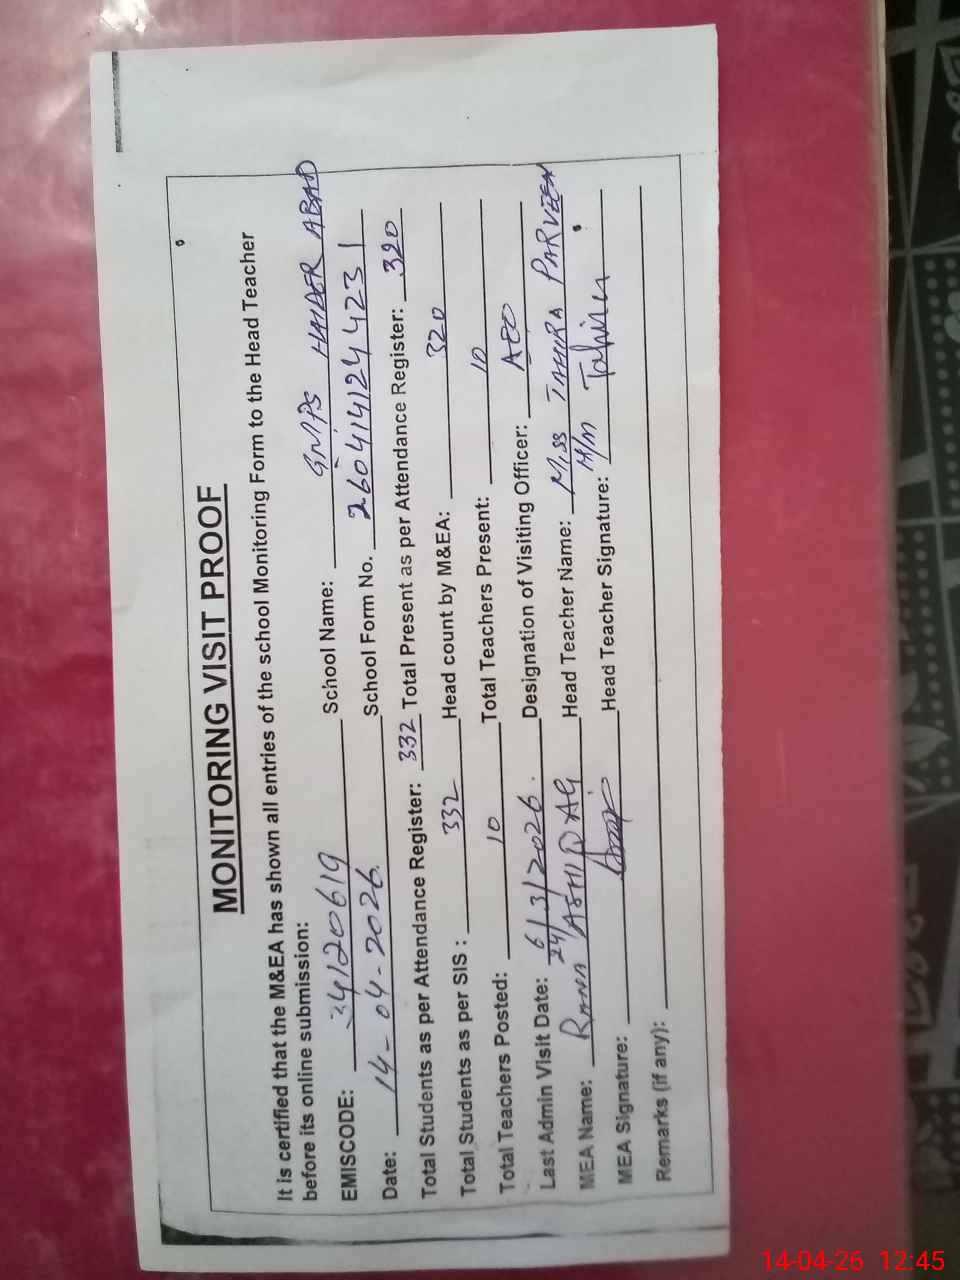 MONITORING VISIT PROOF
It is certified that the M&EA has shown all entries of the school Monitoring Form to the Head Teacher
before its online submission:
EMISCODE: 34120619 School Name: GMPS HAIDER ABAD
Date: 14-04-2026 School Form No. 260414124423 1
Total Students as per Attendance Register: 332 Total Present as per Attendance Register: 320
Total Students as per SIS : 332 Head count by M&EA: 320
Total Teachers Posted: 10 Total Teachers Present: 10
Last Admin Visit Date: /3/2026. Designation of Visiting Officer: AEO
MEA Name: Rana Head Teacher Name: Miss TAHIRA PARVEEN
MEA Signature: Head Teacher Signature: H/M Tahira
Remarks (if any):
14-04-26 12:45